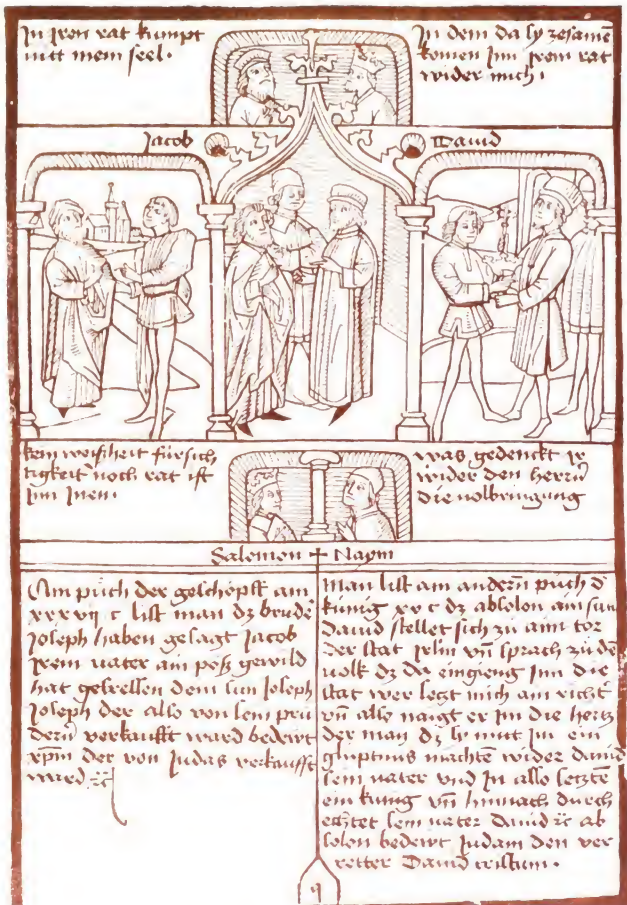 In iren rat kumpt
nitt mein seel.
In dem da sy zesamē
komen Inn irem rat
wider mich.
Jacob
Dauid
kein weisheit fürsich
tigkeit noch rat ist
Inn Inen.
was gedenckt ir
wider den herrn
die uolbringung
Salemon + Naym
Am püch der geschöpft am
xxxvij c list man dz brudē
Joseph haben gesagt Jacob
irem uater am pösz gewild
hat gefressen dem sun Joseph
Joseph der also von sem prü
dern verkaufft ward bedewt
xpm der von Judas verkaufft
ward ⁊c
Man list am andern püch d̄
künig xv c dz absolon ain sun
Dauid stellet sich zü aim tor
der stat irlm vn̄ sprach zü dē
uolk dz da eingieng Inn die
stat wer setzt mich ain richt
vn̄ also naigt er im die hertz
der man dz sy mit im ein
glüptnus machtē wider dauid
sein uater vnd In also setztē
ein kung vn̄ hinnach durch
echtet sein uater Dauid ⁊c ab
solon bedewt Judam den ver
retter Dauid cristum.
q